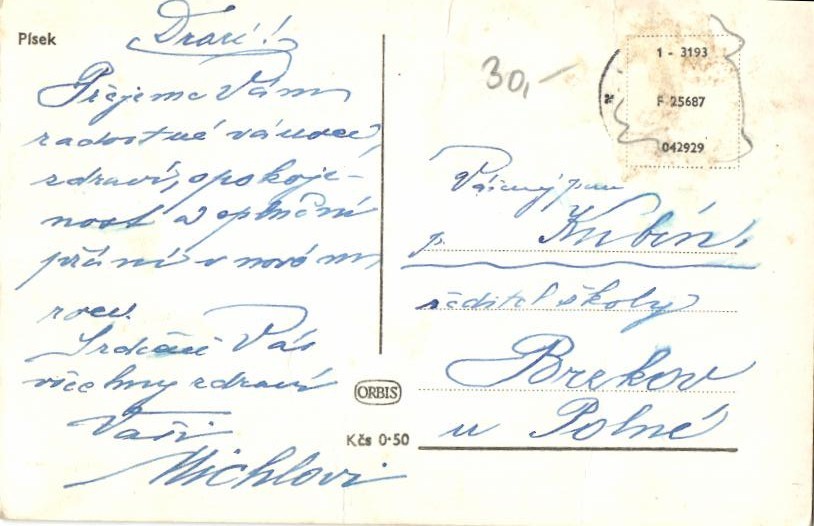 Písek
Drazí!
Přejeme Vám
radostné vánoce,
zdraví, spokoje-
nost a splnění
přání v novém
roce.
Srdečně Vás
všechny zdraví
Vaši
Michlovi
ORBIS
Kčs 0·50
30,-
1 - 3193
F 25687
042929
Vážený pan
p. Kubín,
ředitel školy
Brzkov
u Polné